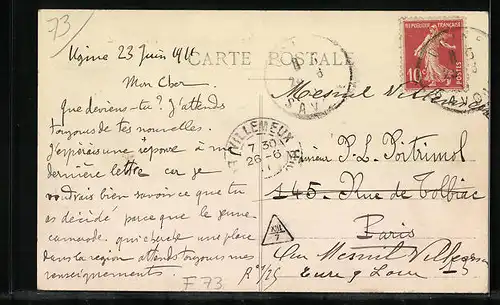 73
Ugine 23 Juin 1911
CARTE POSTALE
RÉPUBLIQUE FRANÇAISE
10c
POSTES
Mon Cher
Que deviens-tu ? J'attends
toujours de tes nouvelles.
J'espérais une réponse à ma
dernière lettre car je
voudrais bien savoir ce que tu
as décidé parce que le jeune
camarade qui cherche une place
dans la région attends toujours mes
renseignements.
F 73
VILLEMEUX
7 30
26-6
Mesnil
P. L. Poitrimol
145 Rue de Tolbiac
Paris
Mesnil
Eure & Loir